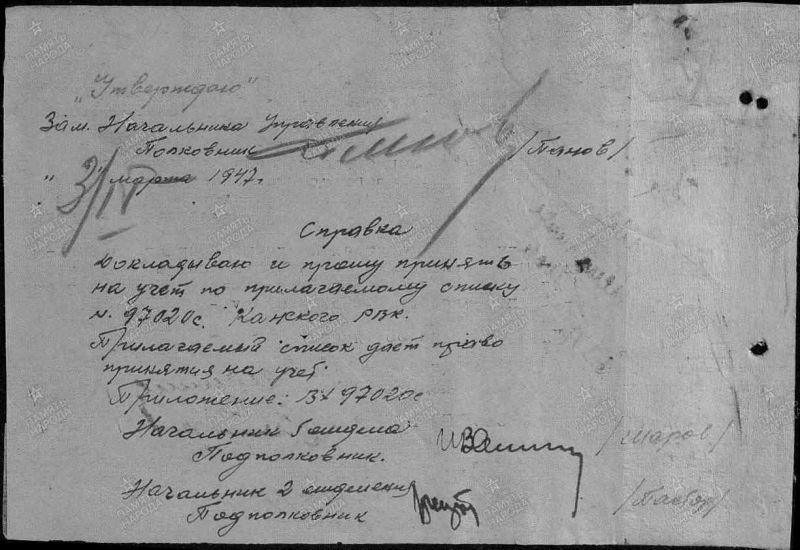 "Утверждаю"
Зам. Начальника Управления
Полковник /Панов/
" " марта 1947г.
3/IV
Справка
Докладываю и прошу принять
на учет по прилагаемому списку
н. 97020с. Канского РВК.
Прилагаемый список дает право
принятия на учет.
Приложение: Вх 97020с
Начальник 5 отдела
Подполковник. /Шаров/
Начальник 2 отделения
Подполковник